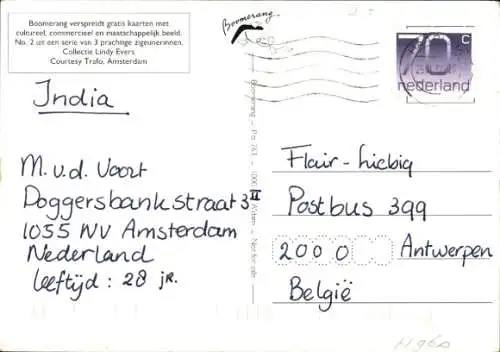 Boomerang verspreidt gratis kaarten met
cultureel, commercieel en maatschappelijk beeld.
No. 2 uit een serie van 3 prachtige zigeunerinnen.
Collectie Lindy Evers
Courtesy Trafo, Amsterdam
Boomerang
70 c
nederland
India
M. v.d. Voort
Doggersbankstraat 3 II
1055 NV Amsterdam
Nederland
leeftijd : 28 jr.
Flair - Liebig
Postbus 399
2000 Antwerpen
België